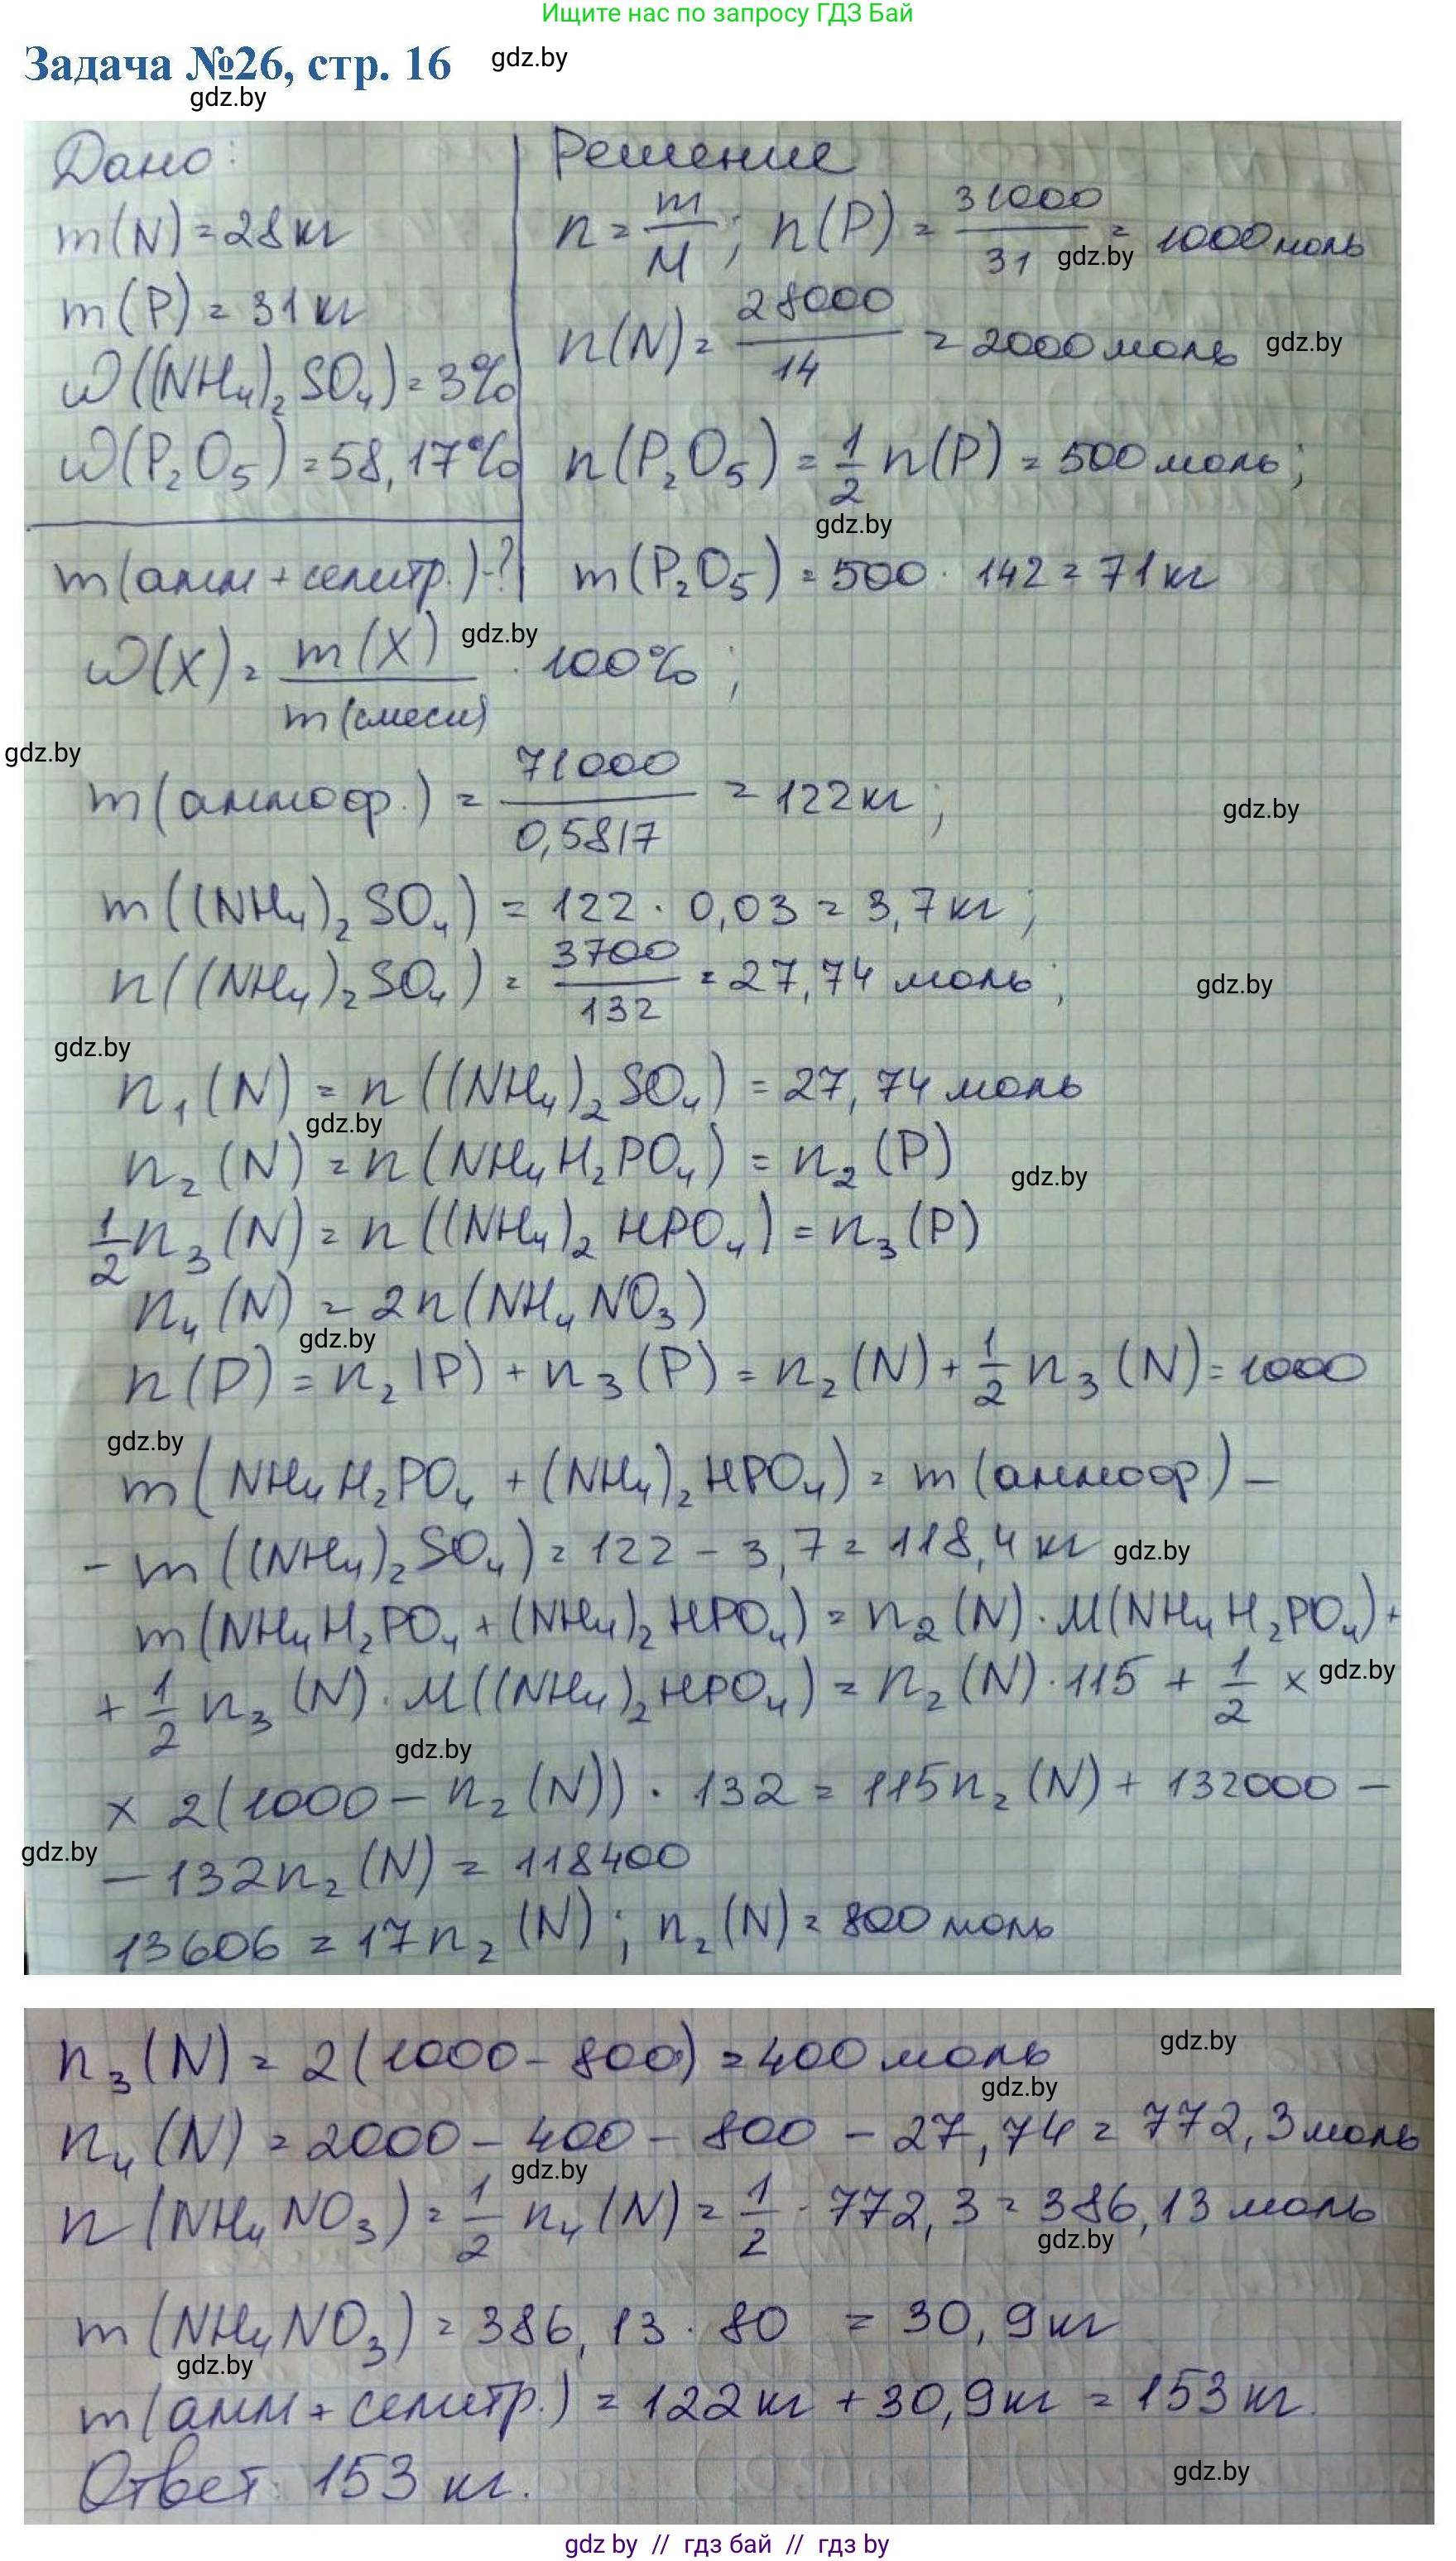 Ищите нас по запросу ГДЗ Бай
Задача №26, стр. 16 gdz.by
gdz.by
Дано: Решение
m(N) = 28 кг n = m/M; n(P) = 31000/31 = 1000 моль
gdz.by
m(P) = 31 кг n(N) = 28000/14 = 2000 моль gdz.by
ω((NH₄)₂SO₄) = 3%
ω(P₂O₅) = 58,17% n(P₂O₅) = 1/2 n(P) = 500 моль;
gdz.by
m(амм + селитр.) - ? m(P₂O₅) = 500 · 142 = 71 кг
gdz.by
ω(X) = m(X)/m(смеси) · 100%;
gdz.by
m(аммоф.) = 71000/0,5817 = 122 кг; gdz.by
m((NH₄)₂SO₄) = 122 · 0,03 = 3,7 кг;
n((NH₄)₂SO₄) = 3700/132 = 27,74 моль; gdz.by
gdz.by
n₁(N) = n((NH₄)₂SO₄) = 27,74 моль
gdz.by
n₂(N) = n(NH₄H₂PO₄) = n₂(P) gdz.by
1/2 n₃(N) = n((NH₄)₂HPO₄) = n₃(P)
n₄(N) = 2n(NH₄NO₃)
gdz.by
n(P) = n₂(P) + n₃(P) = n₂(N) + 1/2 n₃(N) = 1000
gdz.by
m(NH₄H₂PO₄ + (NH₄)₂HPO₄) = m(аммоф) –
– m((NH₄)₂SO₄) = 122 – 3,7 = 118,4 кг gdz.by
m(NH₄H₂PO₄ + (NH₄)₂HPO₄) = n₂(N) · M(NH₄H₂PO₄) +
+ 1/2 n₃(N) · M((NH₄)₂HPO₄) = n₂(N) · 115 + 1/2 × gdz.by
gdz.by
× 2(1000 – n₂(N)) · 132 = 115n₂(N) + 132000 –
gdz.by
– 132n₂(N) = 118400
13606 = 17n₂(N); n₂(N) = 800 моль
n₃(N) = 2(1000 - 800) = 400 моль gdz.by
gdz.by
n₄(N) = 2000 – 400 – 800 – 27,74 = 772,3 моль
gdz.by
n(NH₄NO₃) = 1/2 n₄(N) = 1/2 · 772,3 = 386,13 моль
gdz.by
m(NH₄NO₃) = 386,13 · 80 = 30,9 кг
gdz.by
m(амм + селитр.) = 122 кг + 30,9 кг = 153 кг.
Ответ: 153 кг. gdz.by
gdz by // гдз бай // гдз by